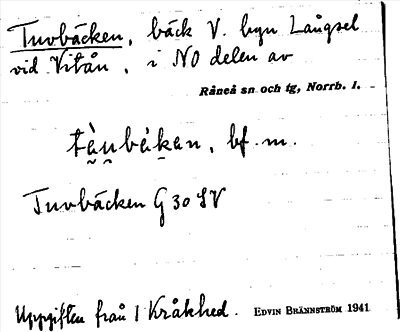 Tuvbäcken, bäck V. byn Långsel
vid Vitån, i NO delen av
Råneå sn och tg, Norrb. l.
bf. m.
Tuvbäcken G 30 SV
Uppgiften från I Kråkhed. EDVIN BRÄNNSTRÖM 1941